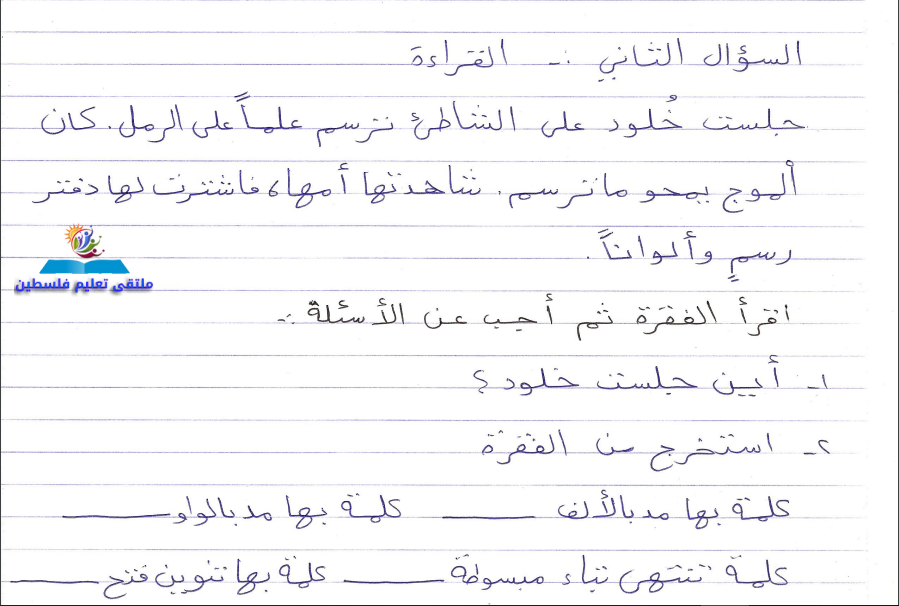 السؤال الثاني :- القراءة
جلست خُلود على الشاطئ ترسم علماً على الرمل. كان
ألموج يمحو ما ترسم. شاهدتها أمها، فاشترت لها دفتر
رسمٍ وألواناً.
ملتقى تعليم فلسطين
اقرأ الفقرة ثم أجب عن الأسئلة :-
١- أين جلست خلود ؟
٢- استخرج من الفقرة
كلمة بها مد بالألف ـــــــــ كلمة بها مد بالواو ـــــــــ
كلمة تنتهي بتاء مبسوطة ـــــــــ كلمة بها تنوين فتح ـــــــــ